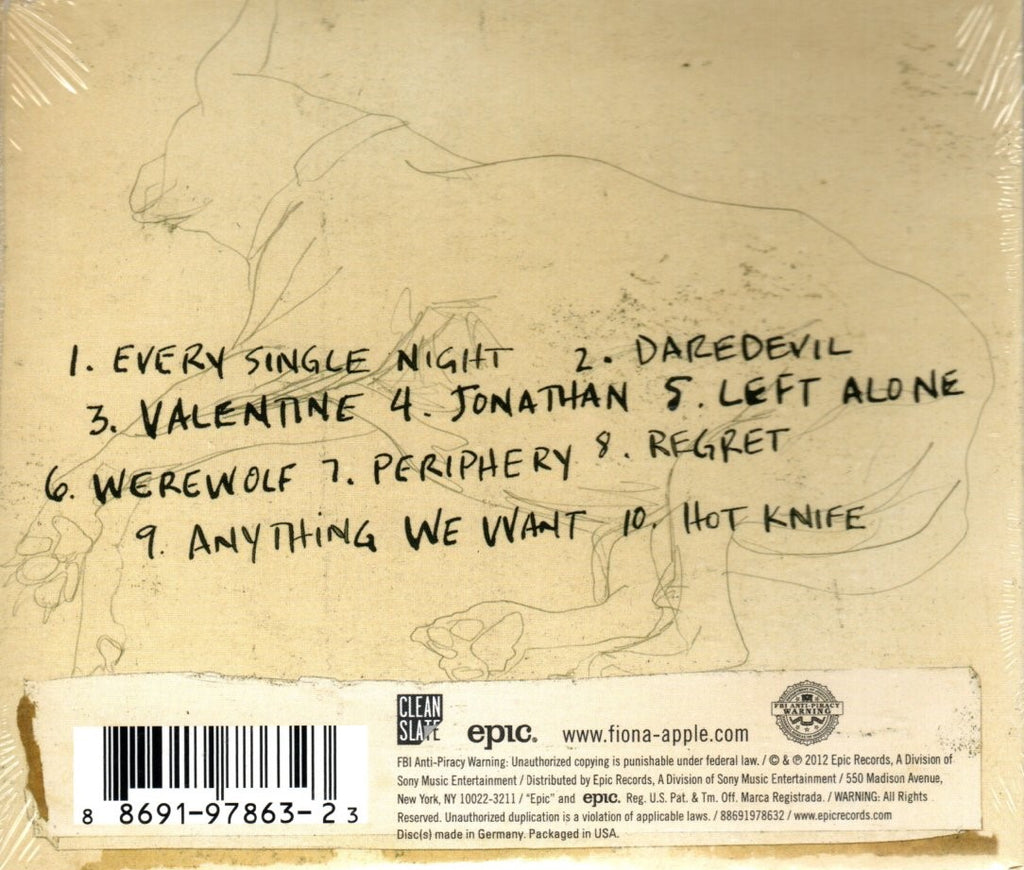 1. EVERY SINGLE NIGHT 2. DAREDEVIL
3. VALENTINE 4. JONATHAN 5. LEFT ALONE
6. WEREWOLF 7. PERIPHERY 8. REGRET
9. ANYTHING WE WANT 10. HOT KNIFE
CLEAN
SLATE
epic. www.fiona-apple.com
FBI ANTI-PIRACY
WARNING
FBI Anti-Piracy Warning: Unauthorized copying is punishable under federal law. / © & ℗ 2012 Epic Records, A Division of
Sony Music Entertainment / Distributed by Epic Records, A Division of Sony Music Entertainment / 550 Madison Avenue,
New York, NY 10022-3211 / "Epic" and epic. Reg. U.S. Pat. & Tm. Off. Marca Registrada. / WARNING: All Rights
Reserved. Unauthorized duplication is a violation of applicable laws. / 88691978632 / www.epicrecords.com
Disc(s) made in Germany. Packaged in USA.
8 8691-97863-2 3